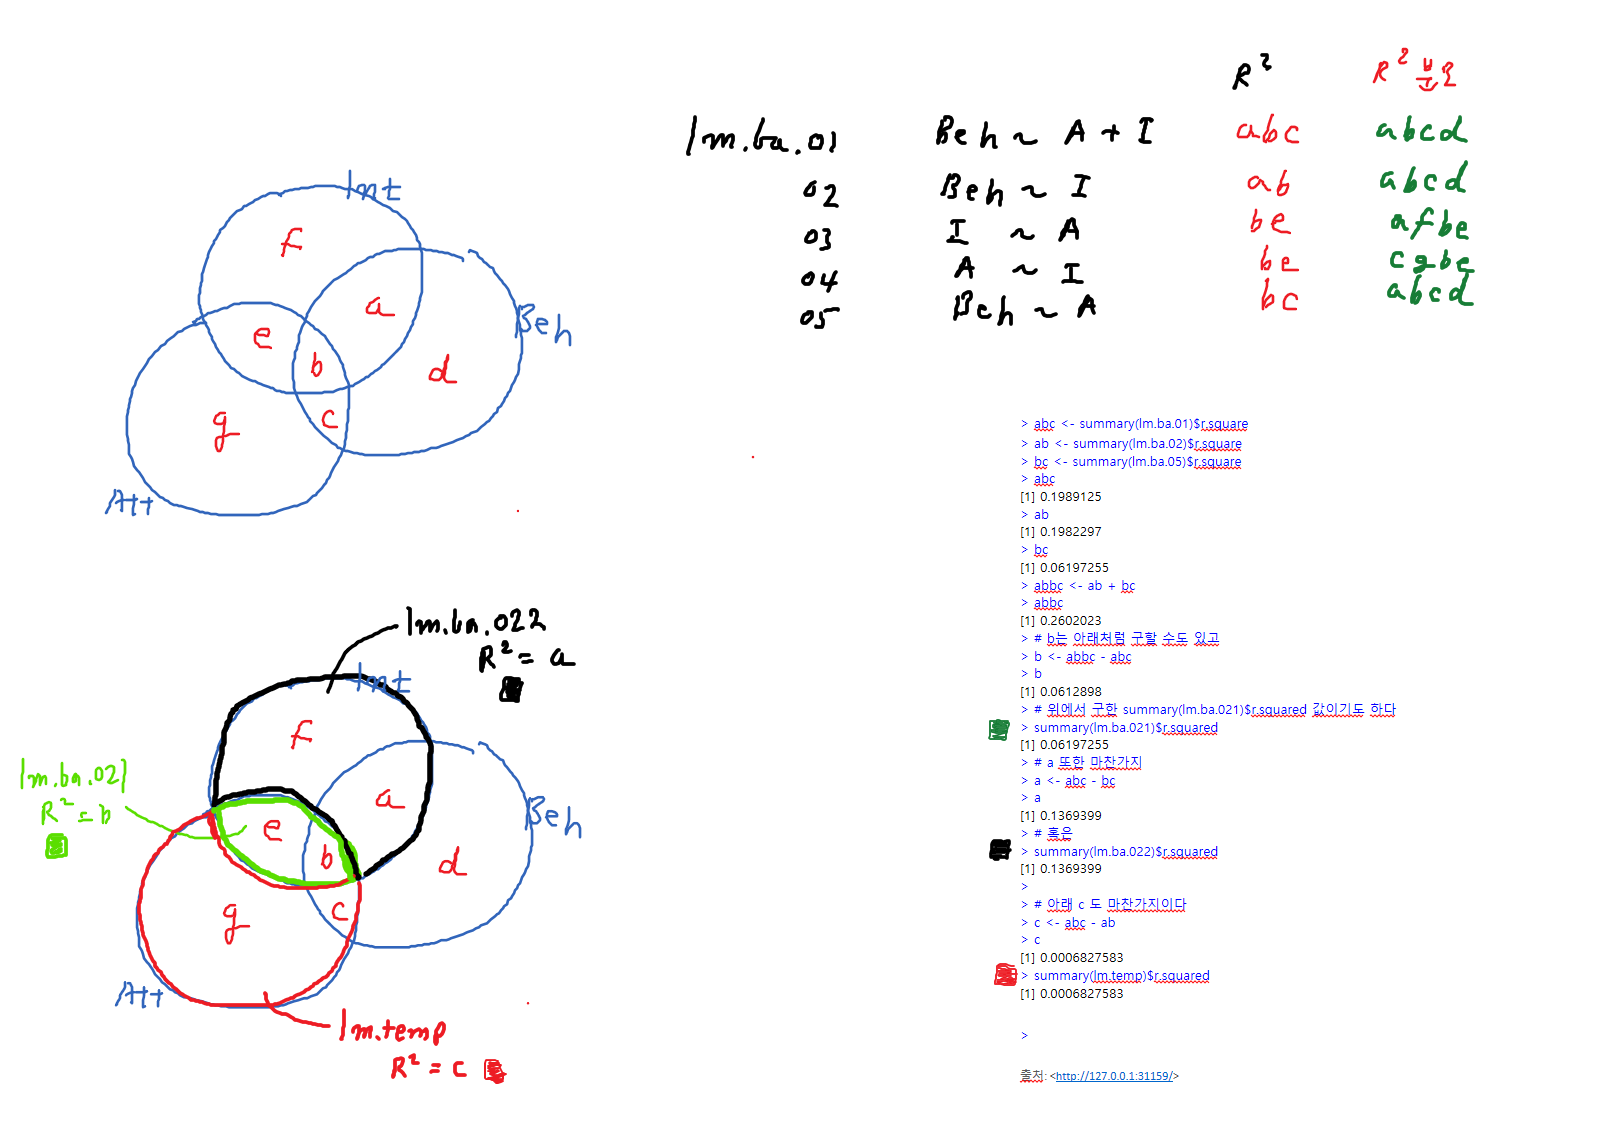 R² R² 분모
lm.ba.01 Beh ~ A + I abc abcd
02 Beh ~ I ab abcd
03 I ~ A be afbe
04 A ~ I be cgbe
05 Beh ~ A bc abcd
Int
f
a
Beh
e
b
d
g
c
Att
> abc <- summary(lm.ba.01)$r.square
> ab <- summary(lm.ba.02)$r.square
> bc <- summary(lm.ba.05)$r.square
> abc
[1] 0.1989125
> ab
[1] 0.1982297
> bc
[1] 0.06197255
> abbc <- ab + bc
> abbc
[1] 0.2602023
> # b는 아래처럼 구할 수도 있고
> b <- abbc - abc
> b
[1] 0.0612898
> # 위에서 구한 summary(lm.ba.021)$r.squared 값이기도 하다
> summary(lm.ba.021)$r.squared
[1] 0.06197255
> # a 또한 마찬가지
> a <- abc - bc
> a
[1] 0.1369399
> # 혹은
> summary(lm.ba.022)$r.squared
[1] 0.1369399
>
> # 아래 c 도 마찬가지이다
> c <- abc - ab
> c
[1] 0.0006827583
> summary(lm.temp)$r.squared
[1] 0.0006827583
>
출처: <http://127.0.0.1:31159/>
lm.ba.022
R² = a
Int
f
lm.ba.021
R² = b
a
Beh
e
b
d
g
c
Att
lm.temp
R² = c